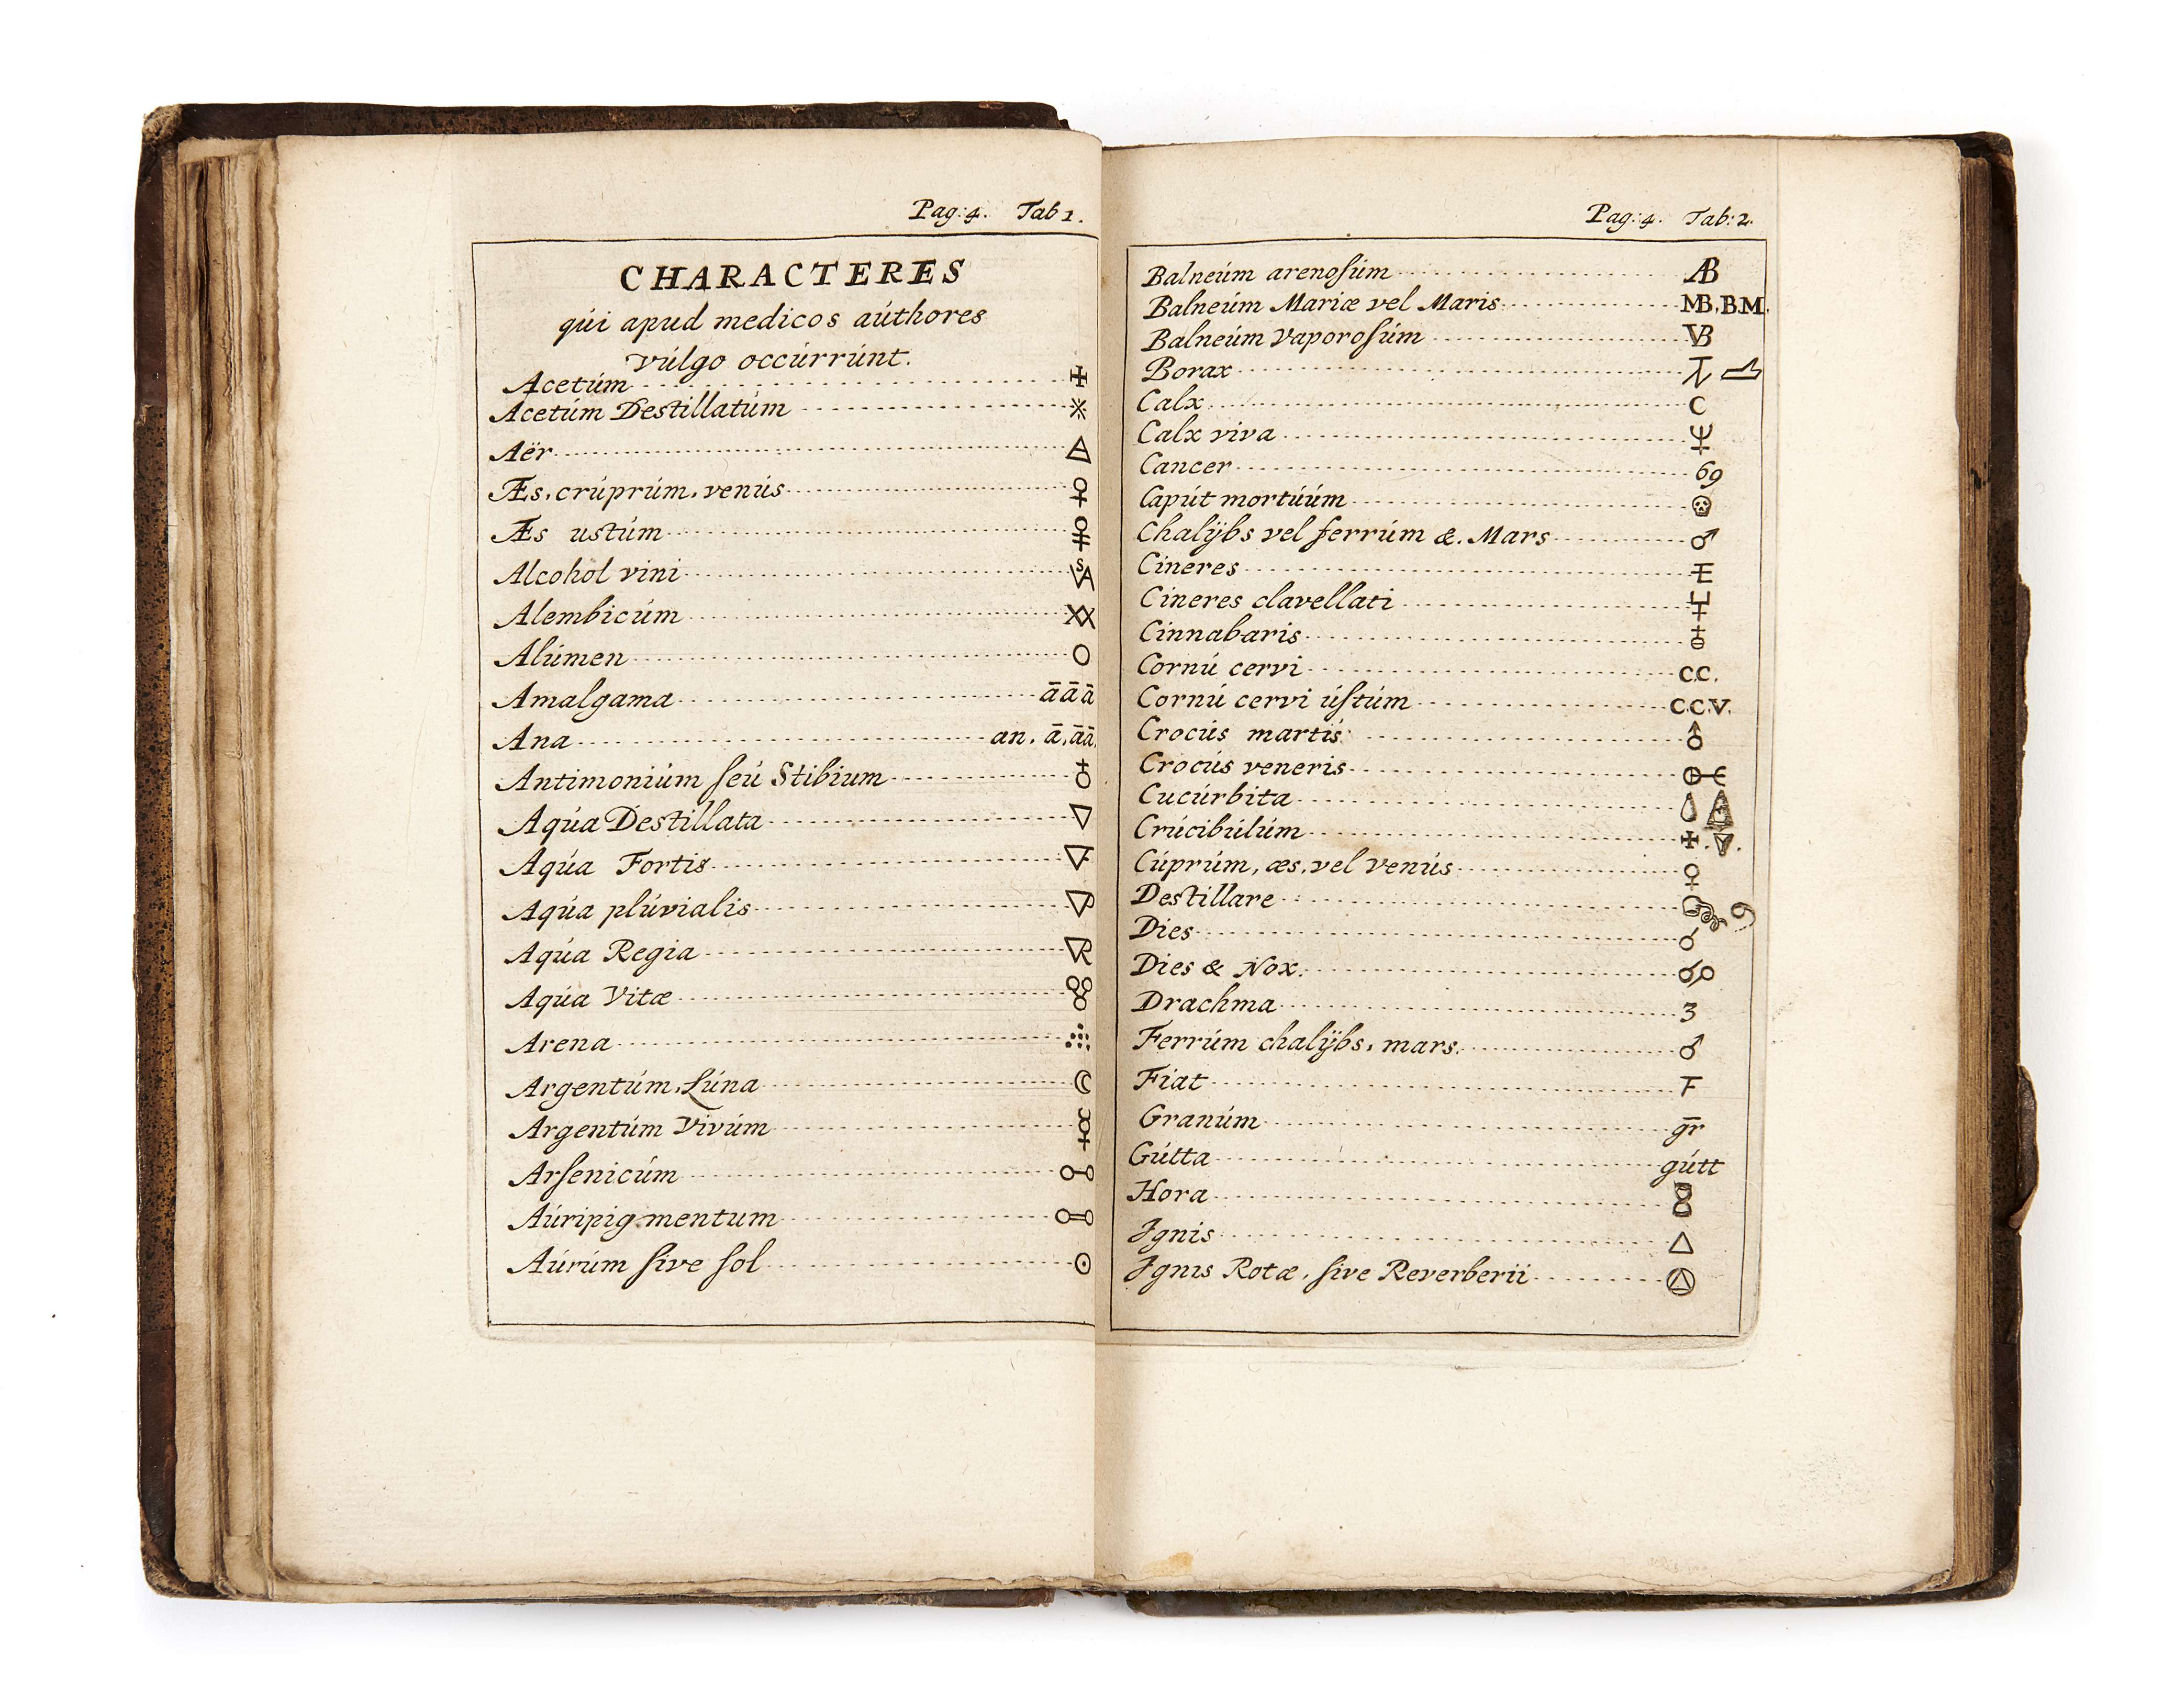 Pag: 4. Tab 1.
CHARACTERES
qúi apud medicos aúthores
vúlgo occúrrúnt.
Acetúm
Acetúm Destillatúm
Aër
Æs, crúprúm, venús ♀
Æs ustúm
Alcohol vini
Alembicúm
Alúmen ○
Amalgama āāā
Ana an. ā, āā,
Antimoniúm ſeú Stibium ♁
Aqúa Destillata ▽
Aqúa Fortis
Aqúa plúvialis
Aqúa Regia
Aqúa Vitæ
Arena
Argentúm, Lúna ☾
Argentúm Vivúm ☿
Arſenicúm
Aúripig mentum
Aúrúm ſive ſol ☉
Pag: 4. Tab: 2.
Balneúm arenoſúm AB
Balneúm Mariæ vel Maris MB, BM.
Balneúm Vaporoſúm VB
Borax
Calx C
Calx viva
Cancer 69
Capút mortúúm
Chalÿbs vel ferrúm &. Mars ♂
Cineres
Cineres clavellati
Cinnabaris
Cornú cervi C.C.
Cornú cervi úſtúm C.C.V.
Crocús martis
Crocús veneris
Cucúrbita
Crúcibúlúm
Cúprúm, æs, vel venús ♀
Destillare
Dies
Dies & Nox.
Drachma ʒ
Ferrúm chalÿbs, mars. ♂
Fiat F
Granúm gr̄
Gútta gútt
Hora
Ignis △
Ignis Rotæ, ſive Reverberii